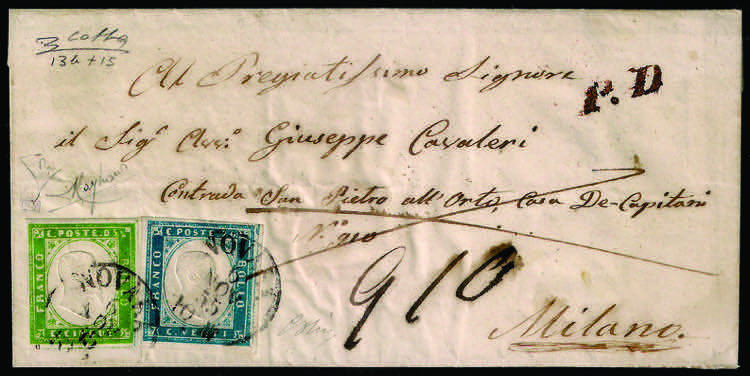 Cotta
13h + 15
Al Pregiatissimo Signore
P.D
il Sig.r Avv.o Giuseppe Cavaleri
Contrada San Pietro all'Orto, Casa De-Capitani
N.o 910
910
Milano.
C. POSTE. D S
FRANCO
BOLLO
C. CINQUE
C. POSTE. D S
FRANCO
BOLLO
C. VENTI
NOVA
NOV